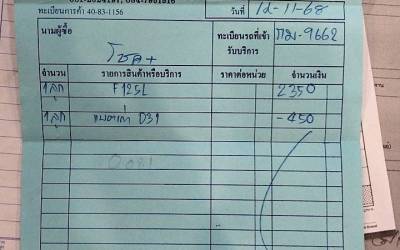 ทะเบียนการค้า 40-83-1156
วันที่ 12-11-68
นามผู้ซื้อ โชค+ ทะเบียนรถที่เข้ารับบริการ กม-9662
จำนวน รายการสินค้าหรือบริการ ราคาต่อหน่วย จำนวนเงิน
1 ลูก F125L 2350
1 ลูก แบตเก่า D31 -450